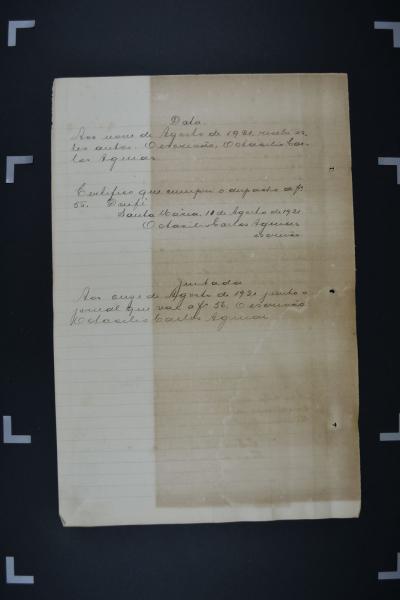 Data.
Aos nove de Agosto de 1921, recebi es-
tes autos. O escrivão, Octacilio Car-
los Aguiar
Certifico que cumpri o despacho de fs
55. Dou fé
Santa Maria, 10 de Agosto de 1921
Octacilio Carlos Aguiar
escrivão
Juntada
Aos onze de Agosto de 1921 junto o
jornal que vae a fs. 56. O escrivão
Octacilio Carlos Aguiar